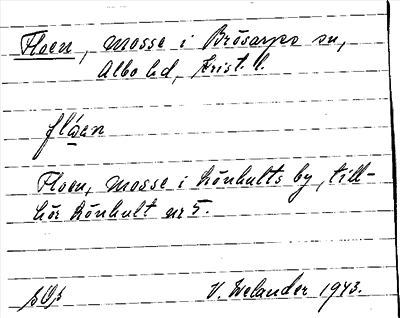 Floen, mosse i Brösarps sn,
Albo hd, Krist. l.
flo̱en
Floen, mosse i Lönhults by, till-
hör Lönhult nr 5.
V. Welander 1943.